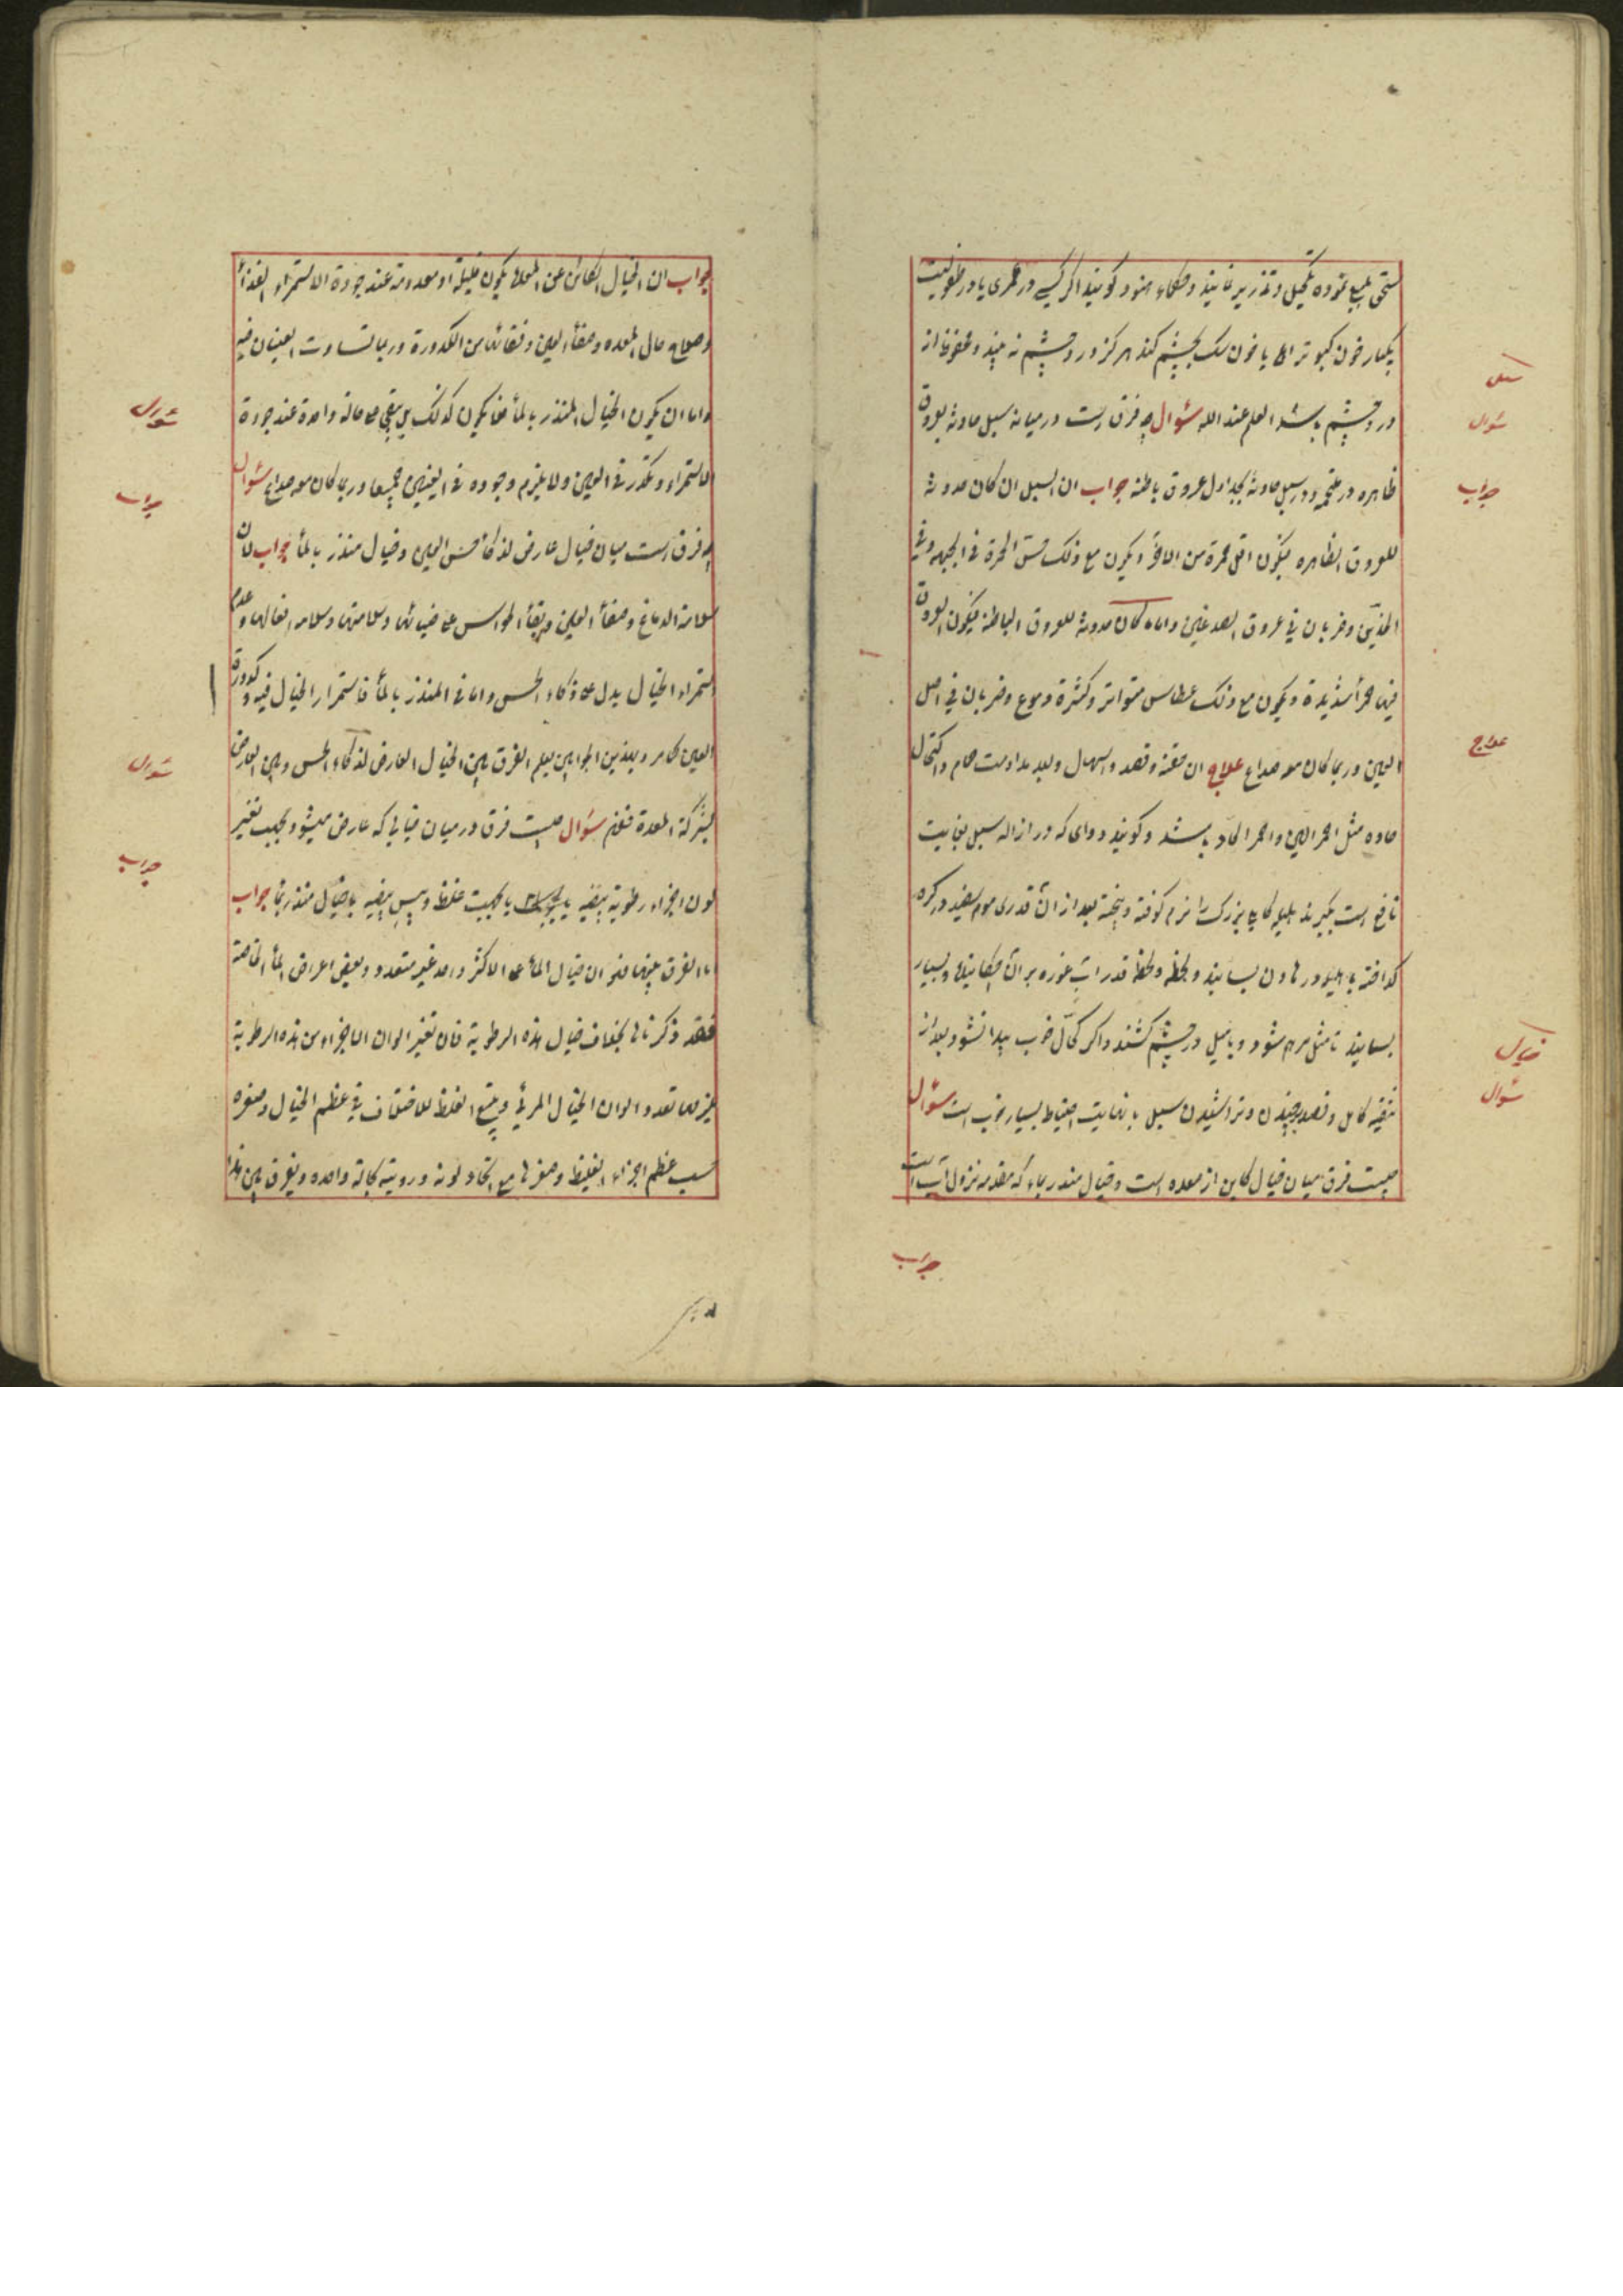 سحق بلیغ نموده تکحیل و تذریر نمایند و حکماء هنود کویند اکر کسی در عمری یا در طفولیت
یکبار خون کبوتر یا خون سک بچشم کند هرکز درد چشم نه بیند و محفوظ از
درد چشم باشد العلم عند الله سؤال چه فرق است درمیانه سبل حادثه بعروق
ظاهره در ملتحمه و در سبل حادثه بجداول عروق باطنه جواب ان السبل ان کان حدوثه
للعروق الظاهره فیکون اقل حمرة من الاخر و یکون مع ذلک الحمرة فی الجبهه و فی
الخدین و ضربان فی عروق الصدغین و اما ما کان حدوثه للعروق الباطنه فیکون العروق
فیها حمرأ شدیدة و یکون مع ذلک عطاس متواتر و کثرة دموع و ضربان فی اصل
العین و ربما کان معه صداع علاج ان حقنه و فصد و اسهال و بعد مداومت حمام و اکتحال
حاده مثل احمر اللین و احمر الحاد باشد و کویند دوای که در ازاله سبل بغایت
نافع است بکیرند هلیله کابلی بزرک را نرم کوفته و پیخته بعد از ان قدری موم سفید در کره
کداخته با هلیله در هاون بسایند و لحظه ولحظه قدر اب غوره بر ان چکانیده و بسیار
بسایند تا مثل مرهم شود و با میل در چشم کشند و اکر کحّال خوب پیدا شود بعد از
تنقیه کامل و فصد برچیدن و تراشیدن سبل با نهایت احتیاط بسیار خوب است سؤال
چیست فرق میان خیال کاین از معده است و خیال منذر بماء که مقدمه نزول آب است
سبل
سؤال
جواب
علاج
خیال
سؤال
جواب
جواب ان الخیال الکائن عن المعده یکون قلیلة او معدومة عند جودة الاستمراء الغذاء
و صلاح حال المعده و صفأ العین و نقائها من الکدورة و ربما تساوت العینان فیه
و اما ان یکون الخیال المنذر بالمأ فلا یکون کذلک بل یبقی علی حالة واحدة عند جودة
الاستمراء و تکدر فی العین و لا یلزم وجوده فی العینین جمیعا و ربما کان معه صداع سؤال
چه فرق است میان خیال عارض لذکأ حس العین و خیال منذر بالمأ جواب لان
سلامة الدماغ و صفأ العین و بقأ الحواس علی ضیائها و سلامتها و سلامة افعالها و عدم
استمراء الخیال یدل علی ذکاء الحس و اما فی المنذر بالمأ فاستمرار الخیال فیه و کدورة
العین کما مر و بهذین الجوابین یعلم الفرق بین الخیال العارض لذکاء الحس و بین العارض
بشرکة المعدة فتعلم سؤال چیست فرق درمیان خیالی که عارض میشود بجهت تغیر
لون اجزاء رطوبة بیضیه یا بجهت غلظ و یبس بیضیه با خیال منذر بما جواب
اما الفرق بینهما فهو ان خیال المأ علی الاکثر واحد غیر متعدد و بعض اعراض المأ الخاصة
فقد ذکرناها بخلاف خیال هذه الرطوبة فان تغیر الوان الاجزاء من هذه الرطوبة
یلزمها تعدد الوان الخیال المرئی و یتبع الغلظ للاختلاف فی عظم الخیال و صغره
بسبب عظم اجزاء الغلیظ و صغرها مع اتحاد لونه و رویته بحالة واحده و یفرق بین هذا
سؤال
جواب
سؤال
جواب